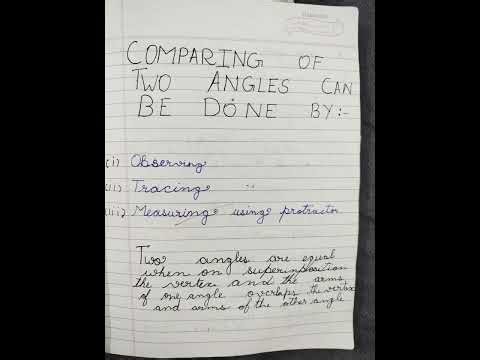 COMPARING OF
TWO ANGLES CAN
BE DONE BY:-
(i) Observing
(ii) Tracing
(iii) Measuring using protractor
Two angles are equal
when on superimposition
the vertex and the arms
of one angle overlaps the vertex
and arms of the other angle